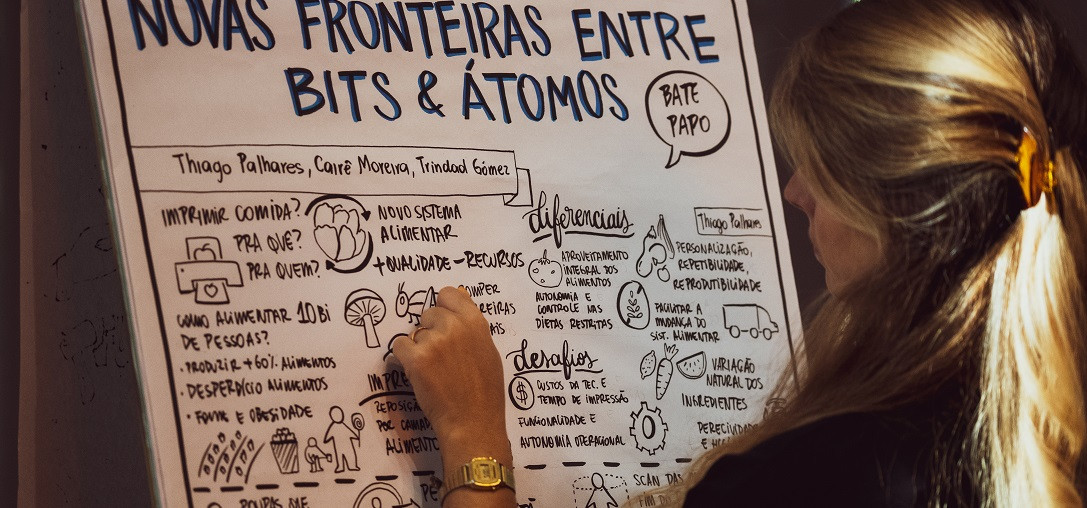 NOVAS FRONTEIRAS ENTRE
BITS & ÁTOMOS
BATE
PAPO
Thiago Palhares, Cairê Moreira, Trindad Gómez
IMPRIMIR COMIDA?
PRA QUÊ?
PRA QUEM?
NOVO SISTEMA
ALIMENTAR
+QUALIDADE -RECURSOS
COMO ALIMENTAR 10BI
DE PESSOAS?
• PRODUZIR +60% ALIMENTOS
• DESPERDÍCIO ALIMENTOS
• FOME E OBESIDADE
POR
ALIMENTO
diferenciais
APROVEITAMENTO
INTEGRAL DOS
ALIMENTOS
AUTONOMIA E
CONTROLE NAS
DIETAS RESTRITAS
Thiago Palhares
PERSONALIZAÇÃO,
REPETIBILIDADE,
REPRODUTIBILIDADE
FACILITAR A
MUDANÇA DO
SIST. ALIMENTAR
desafios
$
CUSTOS DA TEC. E
TEMPO DE IMPRESSÃO
FUNCIONALIDADE E
AUTONOMIA OPERACIONAL
VARIAÇÃO
NATURAL DOS
INGREDIENTES
E
SCAN DAS
FIM DO